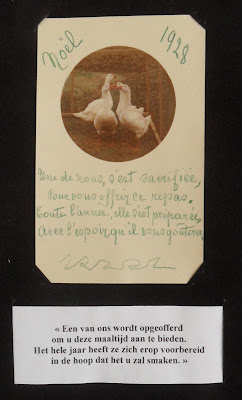 Noël 1928
Une de nous, s'est sacrifiée,
Pour vous offrir ce repas.
Toute l'année, elle s'est préparée,
Avec l'espoir, qu'il vous goûtera.
« Een van ons wordt opgeofferd
om u deze maaltijd aan te bieden.
Het hele jaar heeft ze zich erop voorbereid
in de hoop dat het u zal smaken. »